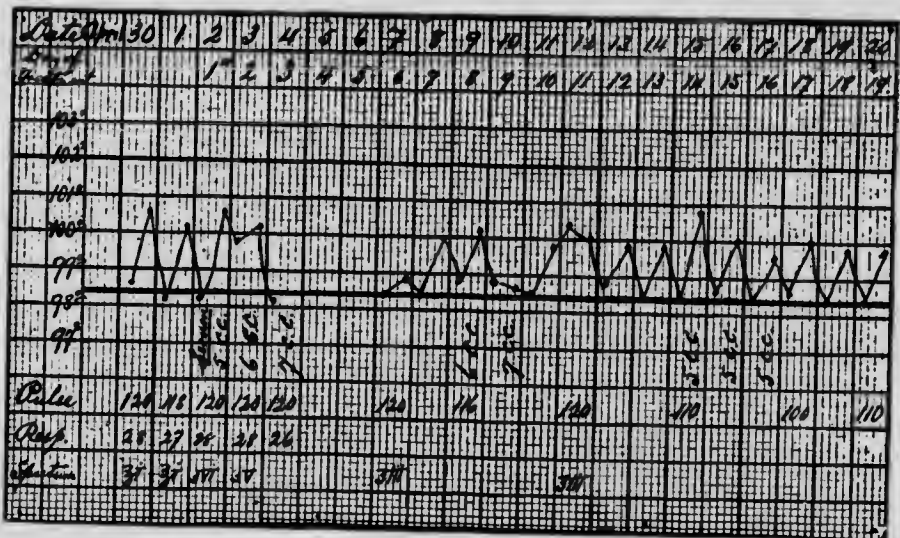 Date 30 1 2 3 4 5 6 7 8 9 10 11 12 13 14 15 16 17 18 19 20
Day of 1 2 3 4 5 6 7 8 9 10 11 12 13 14 15 16 17 18 19
103°
102°
101°
100°
99°
98°
97°
5 c.c. 6 c.c. 7 c.c. 6 c.c. 7 c.c. 5 c.c. 5 c.c. 5 c.c.
Pulse 120 118 120 120 120 120 116 120 110 100 110
Resp. 28 27 28 28 26
Sputum